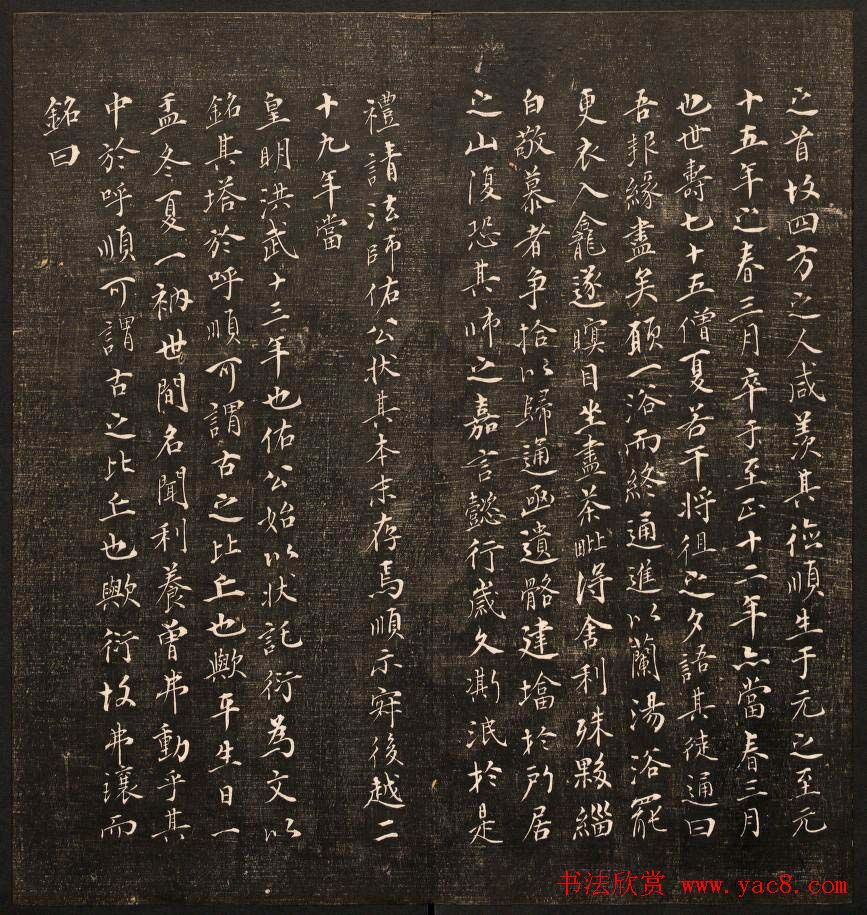 之首故四方之人咸羡其德順生于元之至元
十五年之春三月卒于至正十二年亦當春三月
也世壽七十五僧夏若干將徂之夕語其徒通曰
吾報緣盡矣願一浴而終通進以蘭湯浴罷
更衣入龕遂瞑目坐盡茶毗得舍利殊夥緇
白敬慕者争拾以歸通函遺骼建墖於所居
之山復恐其師之嘉言懿行歲久澌泯於是
禮請法師佑公狀其本末存焉順示寂後越二
十九年當
皇明洪武十三年也佑公始以狀託衍為文以
銘其塔於呼順可謂古之比丘也歟平生日一
盂冬夏一衲世間名聞利養曾弗動乎其
中於呼順可謂古之比丘也歟衍故弗讓而
銘曰
书法欣赏 www.yac8.com